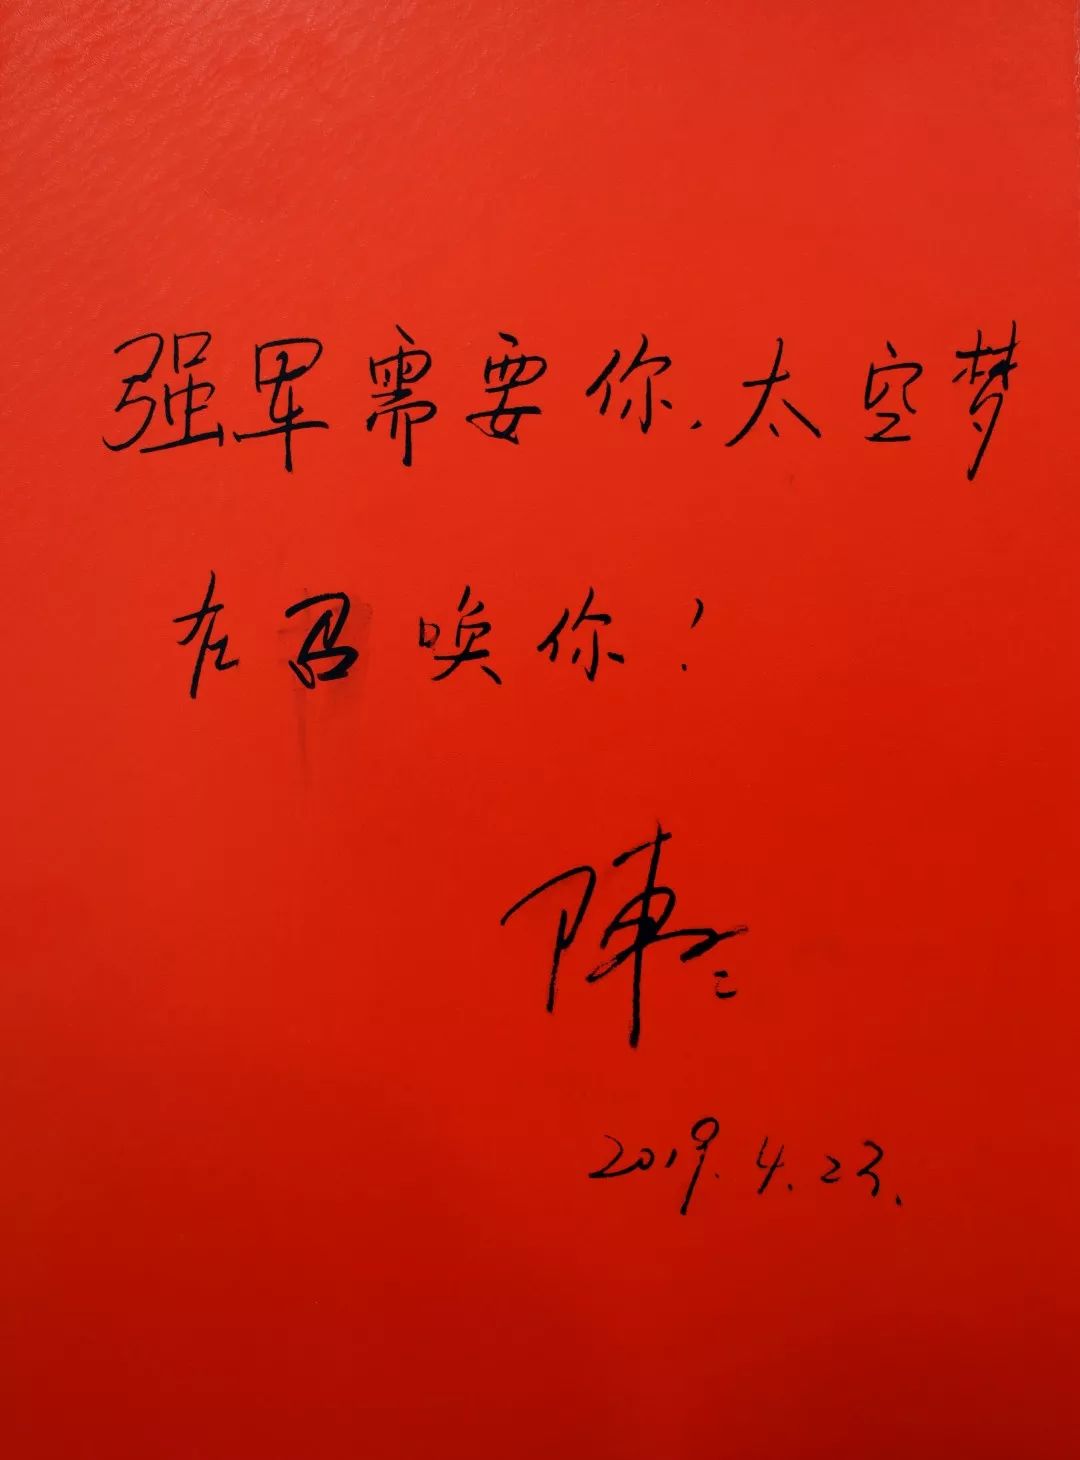 强军需要你.太空梦
在召唤你!
陳冬
2019.4.23.